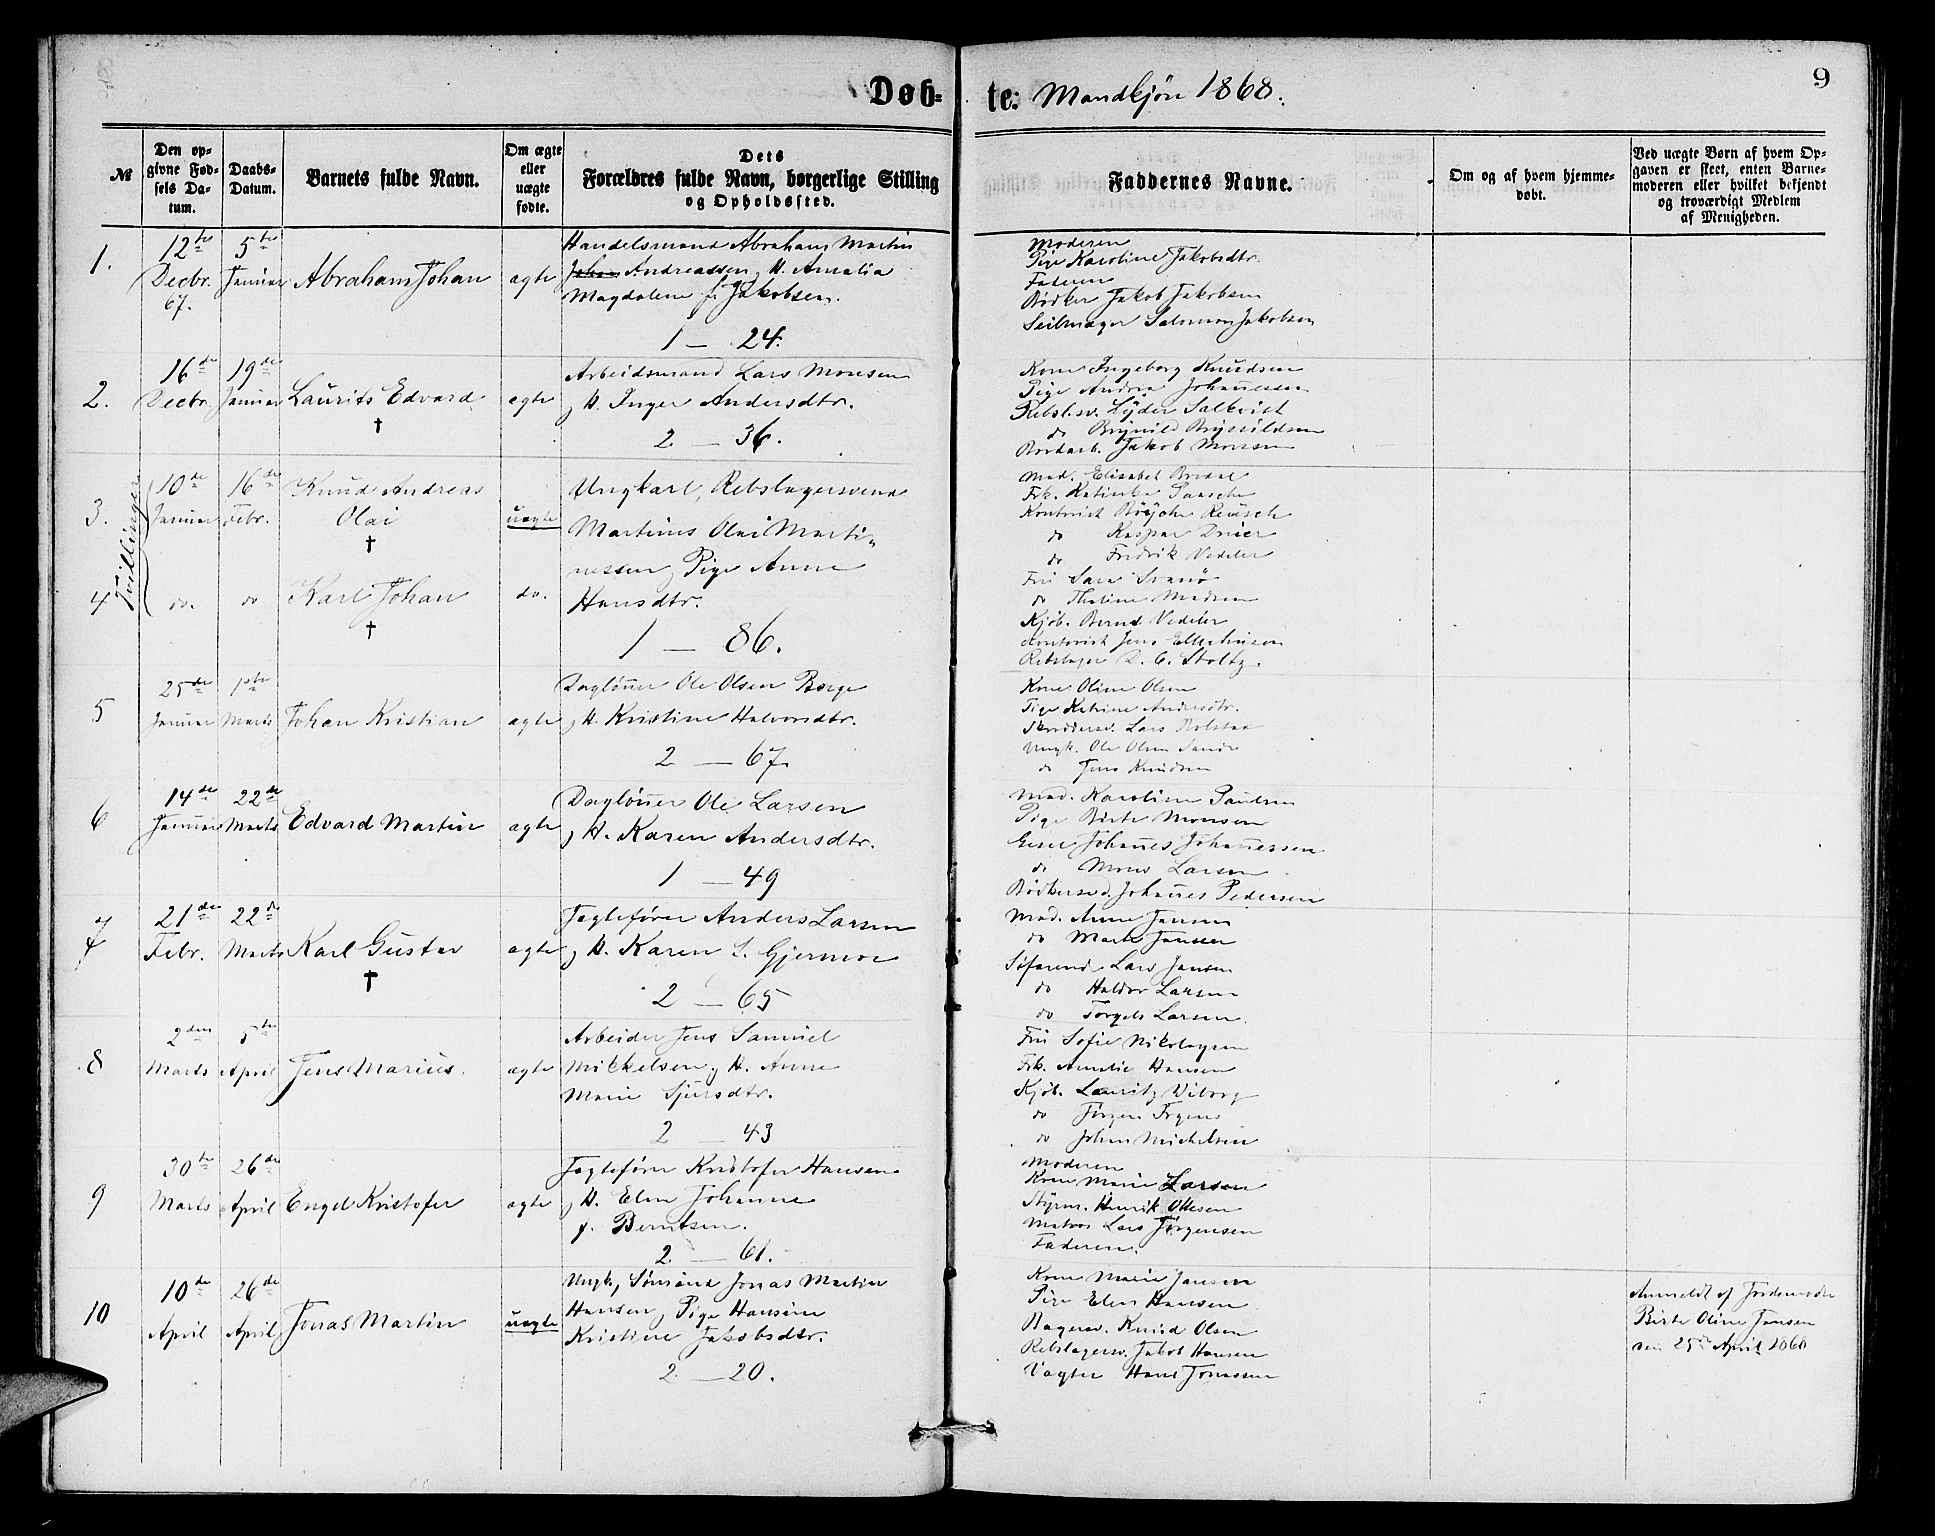 Døb-te: Mandkjøn 1868.
9
№
Den op-
givne Fød-
sels Da-
tum.
Daabs-
Datum.
Barnets fulde Navn.
Om ægte
eller
uægte
fødte.
Dets
Forældres fulde Navn, borgerlige Stilling
og Opholdssted.
Faddernes Navne.
Om og af hvem hjemme-
døbt.
Ved uægte Børn af hvem Op-
gaven er skeet, enten Barne-
moderen eller hvilket bekjendt
og troværdigt Medlem
af Menigheden.
1.
12te
Decbr.
67.
5te
Januar
Abraham Johan
ægte
Handelsmand Abraham Martin
Johan Andreassen, H. Amalia
Magdalene f. Jakobsen.
1 — 24.
Moderen
Pige Karoline Jakobsdtr.
Faderen
Bødker Jakob Jakobsen
Seilmager Salomon Jakobsen
2.
16de
Decbr
19de
Januar
Laurits Edvard
†
ægte
Arbeidsmand Lars Monsen
, H. Inger Andersdtr.
2 — 36.
Kone Ingeborg Knudsen
Pige Andrea Johannessen
Rebsl.sv. Lyder Salkvist
do Brynild Brynildsen
Bordarb. Jakob Monsen
Tvillinger
3.
10de
Januar
16de
Febr.
Knud Andreas
Olai
†
uægte
Ungkarl, Rebslagersvend
Martinus Olai Marti-
nessen, Pige Anne
Hansdtr.
1 — 86.
4
do.
do
Karl Johan
†
do.
Mad. Elisabet
Frk. Katinka Paasche
Kontorist Reusch
do Kaspar
do Fredrik Vedeler
Fru Sara Svanø
do Madsen
Kjøb. Bernt Vedeler
Kontorist Jens Ellerhusen
Rebslager D. C. Stoltz.
5
25de
Januar
1ste
Marts
Johan Kristian
ægte
Dagløner Ole Olsen Berge
, H. Kristine Halvorsdtr.
2 — 67.
Kone Oline Olsen
Pige Katrine Andersdtr.
Skræddersv. Lars Rolstad
Ungk. Ole Olsen
do Jens Knudsen
6
14de
Januar
22de
Marts
Edvard Martin
ægte
Dagløner Ole Larsen
, H. Karen Andersdtr.
1 — 49
Mad. Karoline Paulsen
Pige Birte Monsen
Johannes Johannessen
do Mons Larsen
Bødkersvd. Johannes Pedersen
7
21de
Febr.
22de
Marts
Karl Gustav
†
ægte
Jagtefører Anders Larsen
, H. Karen L. Gjermoe
2 — 65
Mad. Anne Jansen
do Marte Jansen
Søfarend. Lars Jansen
do Haldor Larsen
do Torgels Larsen.
8
2den
Marts
5te
April
Jens Marius.
ægte
Arbeider Jens Samuel
Mikkelsen, H. Anne
Marie Sjursdtr.
2 — 43
Fru Sofie Nikolaysen
Frk. Amalie Hansen
Kjøb. Lauritz Wiborg
do Jørgen
do Johan Michelsen
9
30te
Marts
26de
April
Engel Kristofer
ægte
Jagtefører Kristofer Hansen
, H. Elen Johanne
f. Berntsen.
2 — 61.
Moderen
Kone Marie Larsen
Styrm. Henrik Ottesen
Matros Lars Jørgensen
Faderen.
10
10de
April
26de
April
Jonas Martin
uægte
Ungk, Sømand Jonas Martin
Hansen, Pige Hansine
Kristine Jakobsdtr.
2 — 20.
Kone Marie Jansen
Pige Elen Hansen
Bagersv. Knud Olsen
Rebslagersv. Jakob Hansen
Vægter Hans Jonassen
Anmeldt af Jordemoder
Birte Oline Jansen
den 25de April 1868